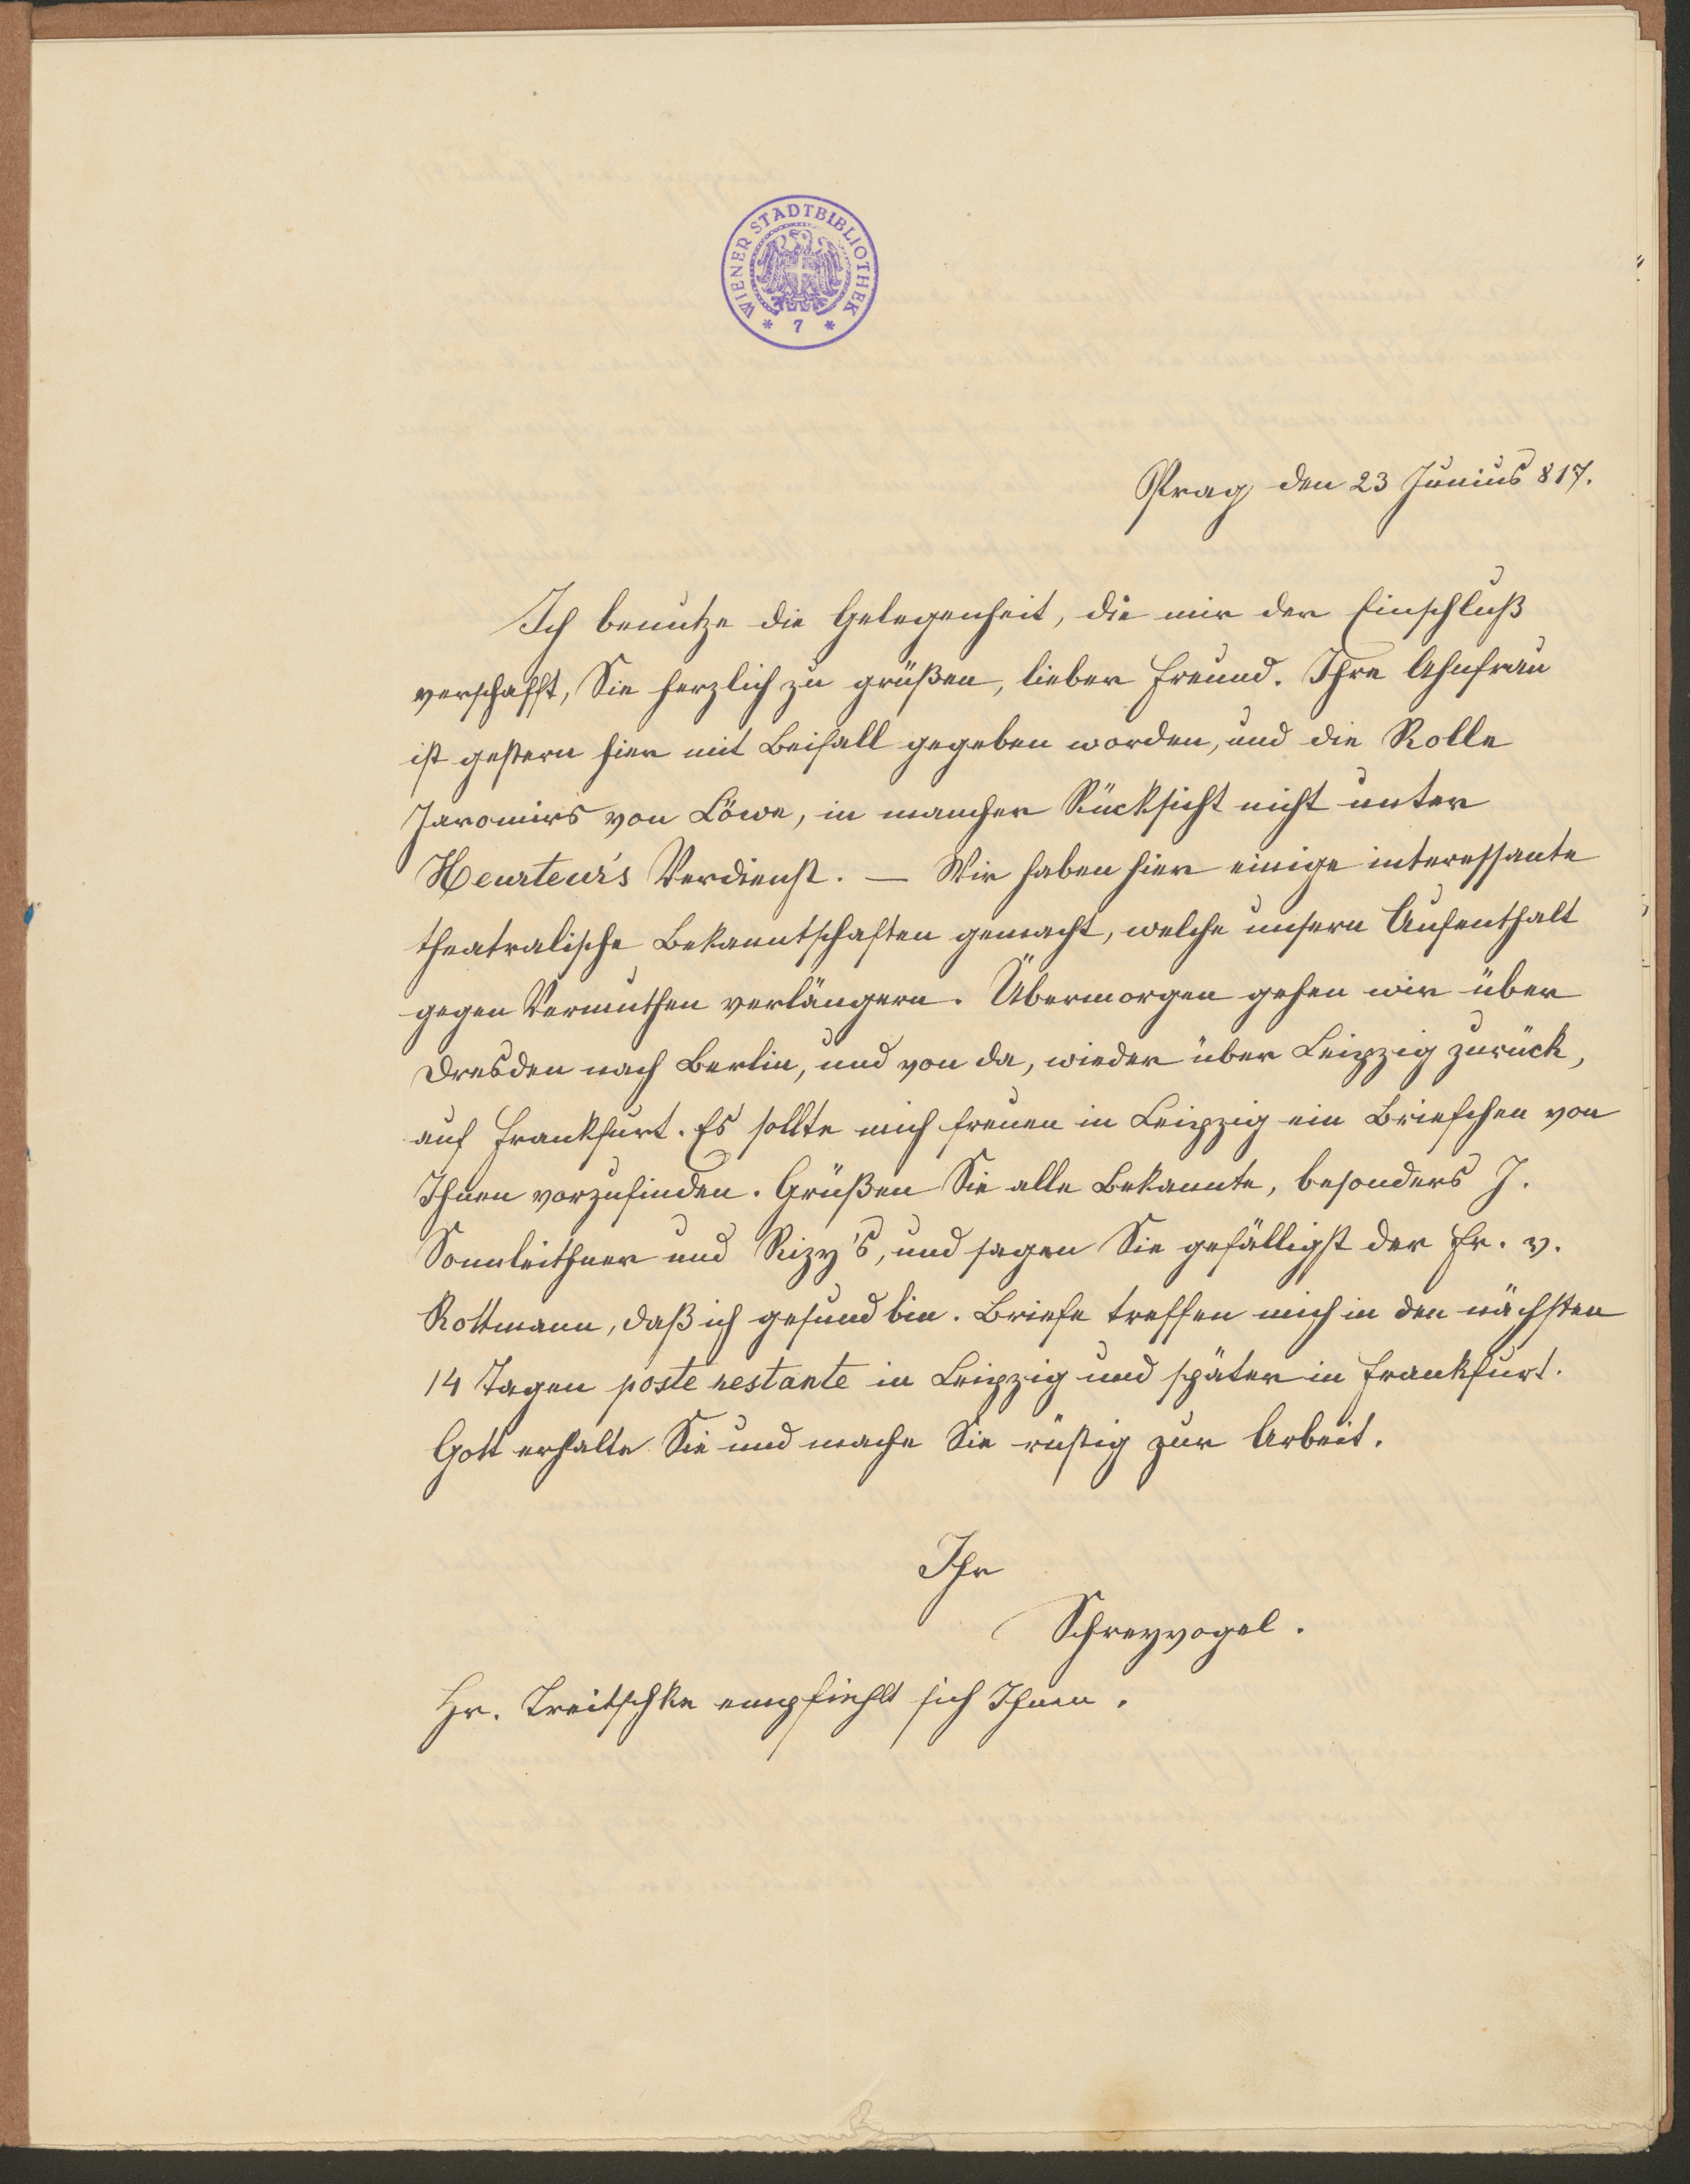 WIENER STADTBIBLIOTHEK
* 7 *
Prag den 23 Junius 817.
Ich benutze die Gelegenheit, die mir der Einschluß
verschafft, Sie herzlich zu grüßen, lieber Freund. Ihre Ahnfrau
ist gestern hier mit Beifall gegeben worden, und die Rolle
Jaromirs von Löwe, in mancher Rücksicht nicht unter
Heurteur's Verdienst. — Wir haben hier einige interessante
theatralische Bekanntschaften gemacht, welche unsern Aufenthalt
gegen Vermuthen verlängern. Übermorgen gehen wir über
Dresden nach Berlin, und von da, wieder über Leipzig zurück,
auf Frankfurt. Es sollte mich freuen in Leipzig ein Briefchen von
Ihnen vorzufinden. Grüßen Sie alle Bekannte, besonders J.
Sonnleithner und Rizy's, und sagen Sie gefälligst der Fr. v.
Rottmann, daß ich gesund bin. Briefe treffen mich in den nächsten
14 Tagen poste restante in Leipzig und später in Frankfurt.
Gott erhalte Sie und mache Sie rüstig zur Arbeit.
Ihr
Schreyvogel.
Hr. Treitschke empfiehlt sich Ihnen.